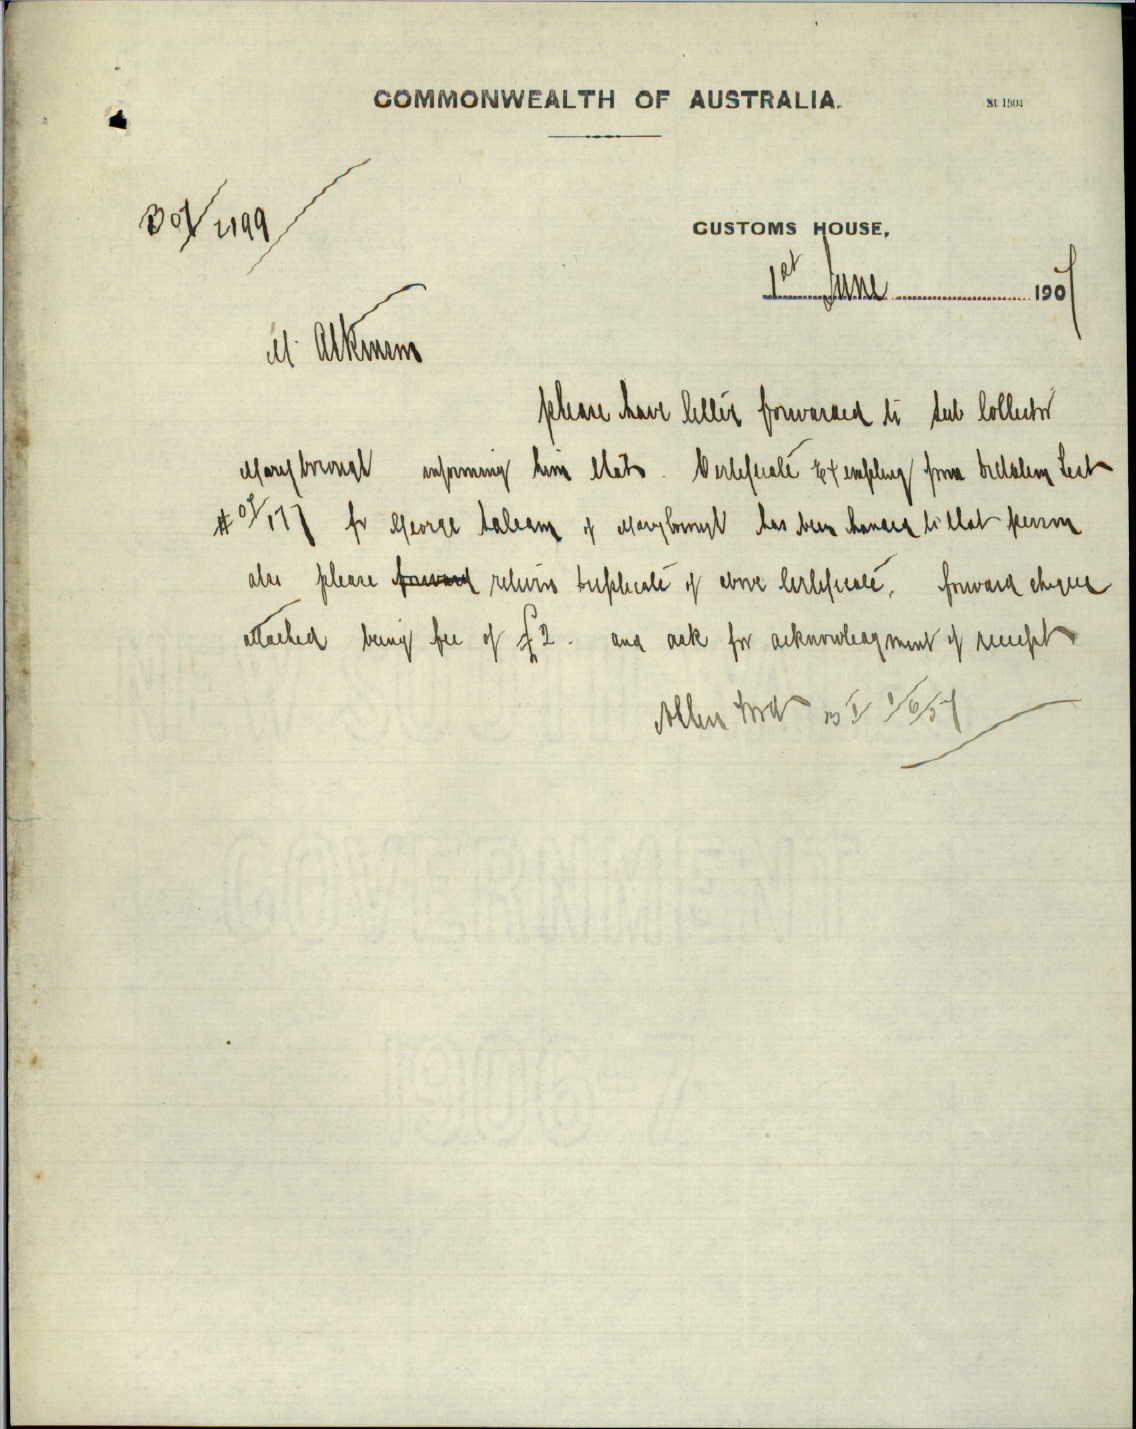 COMMONWEALTH OF AUSTRALIA.
St. 1504
B 07/2199
CUSTOMS HOUSE,
1st June 1907
Mr Atkinson
please have letter forwarded to Sub Collector
Maryborough informing him that Certificate Exempting from Dictation Test
# 07/177 for George of Maryborough has been handed to that person
also please forward return Duplicate of above Certificate, forward cheque
attached being fee of £2. and ask for acknowledgment of receipt
1/6/07
NEW SOUTH WALES
GOVERNMENT
1906-7